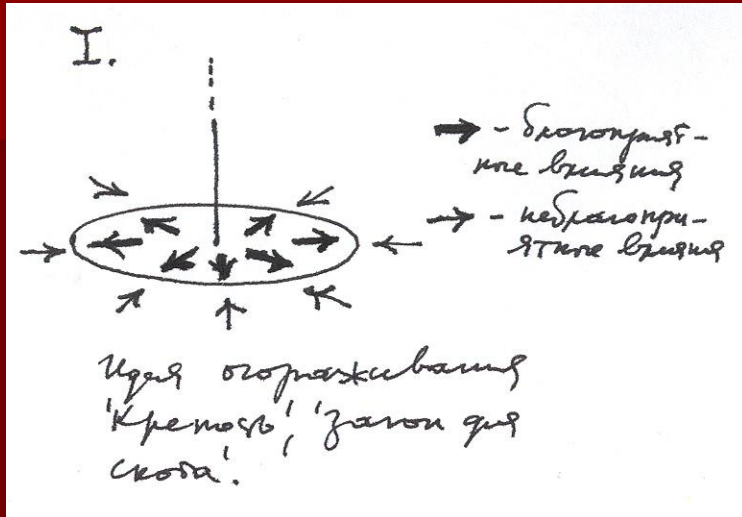 I.
- благоприят-
ные влияния
- неблагопри-
ятные влияния
Идея огораживания
'Крепость', 'загон для
скота'.